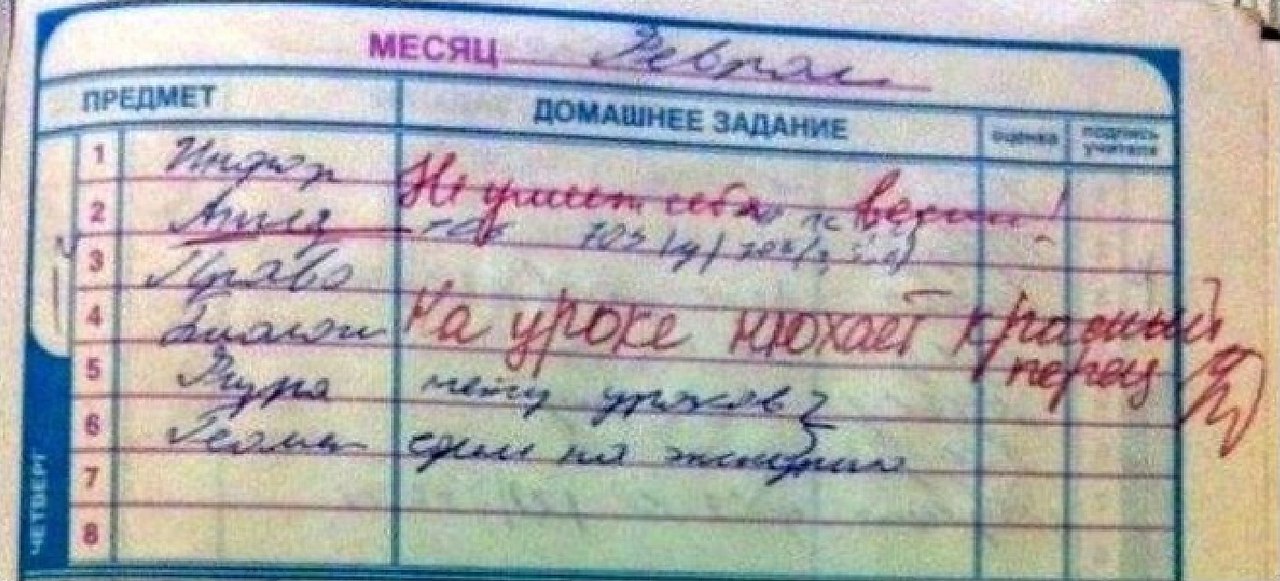 МЕСЯЦ Феврал
ПРЕДМЕТ ДОМАШНЕЕ ЗАДАНИЕ оценка подпись учителя
1 Инфор Не умеет себя вести!
2 Англ
3 Право
4 Биологи На уроке нюхает красный
перец
5 Физра нету уроков
6 Геоме едем на экскурсию
7
8
ЧЕТВЕРГ